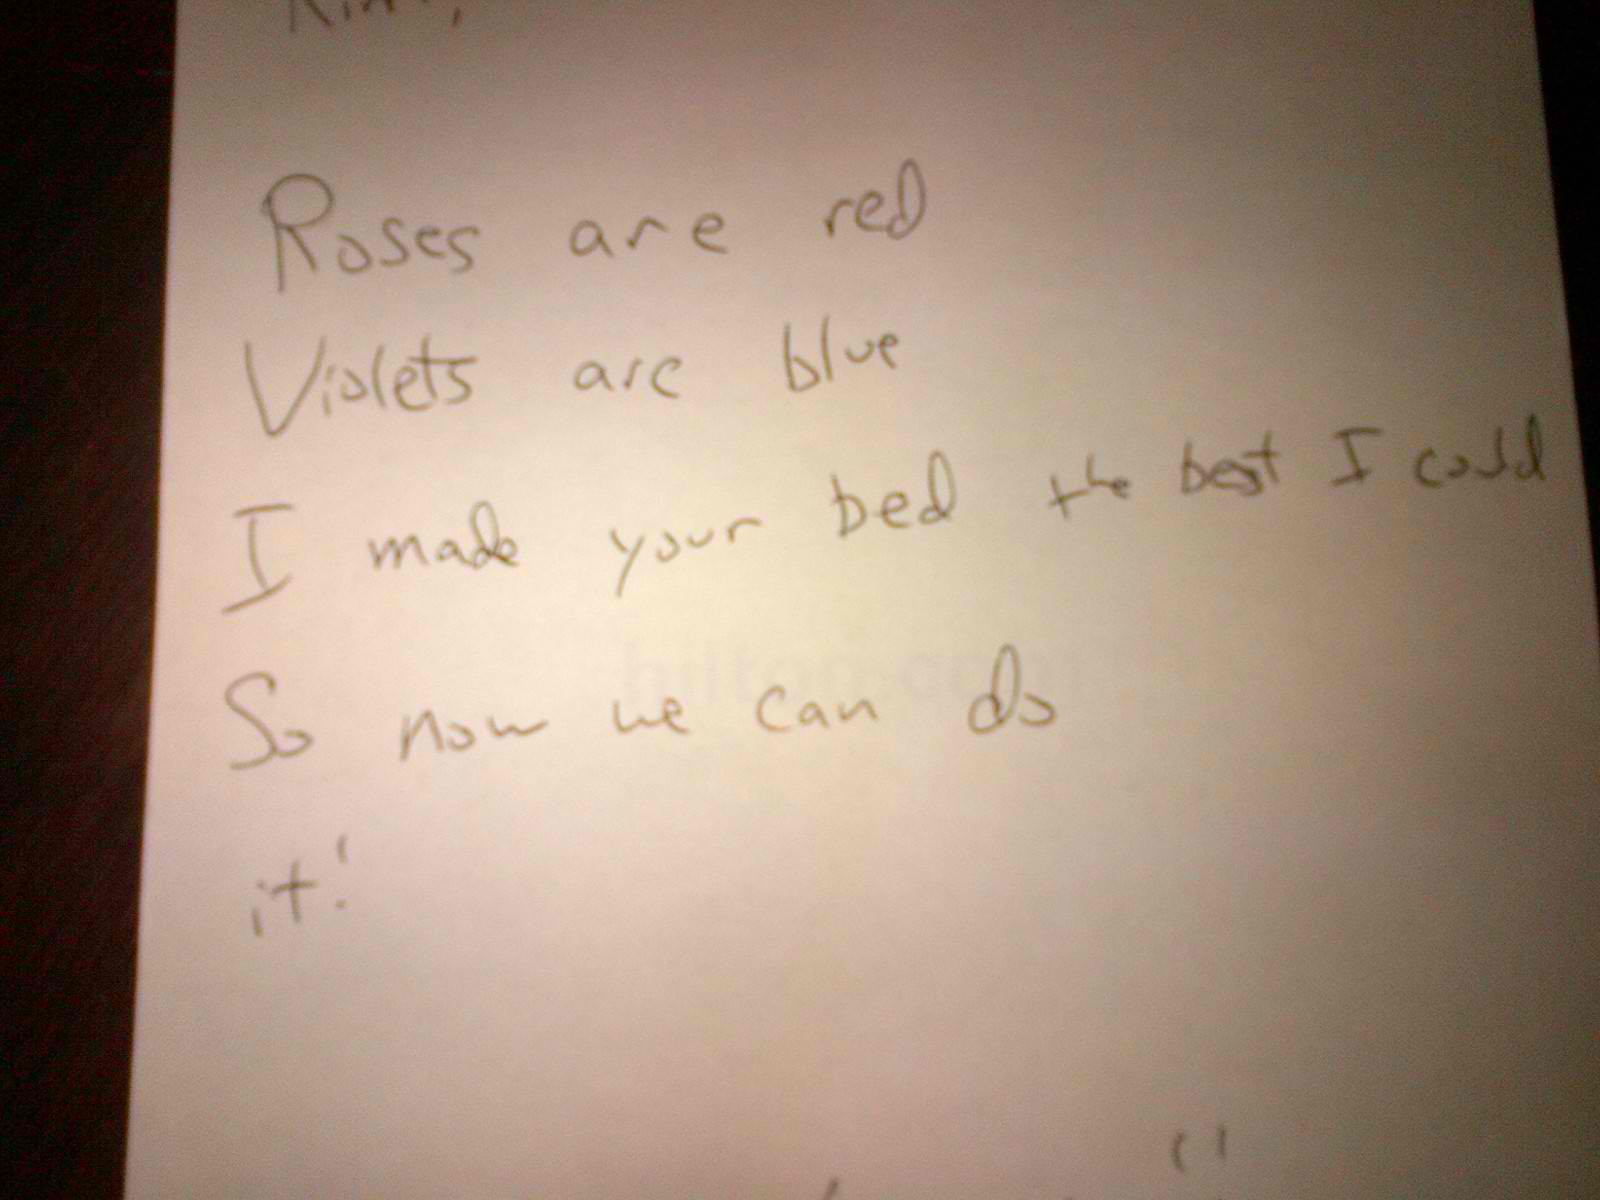 Roses are red
Violets are blue
I made your bed the best I could
So now we can do
it!